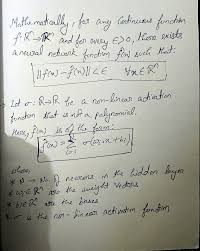 Mathematically, for any continuous function
f: ℝⁿ→ℝᵐ and for every ε>0, there exists
a neural network function f̂(x) such that:
||f(x) - f̂(x)|| < ε ∀x∈ℝⁿ
Let σ: ℝ→ℝ be a non-linear activation
function that is not a polynomial.
Here, f̂(x) is of the form:
f̂(x) = Σ σ(wᵢx + bᵢ)
where
* N → No. of neurons in the hidden layer
* wᵢ∈ℝⁿ are the weight vectors
* bᵢ∈ℝ are the biases
* σ is the non-linear activation function